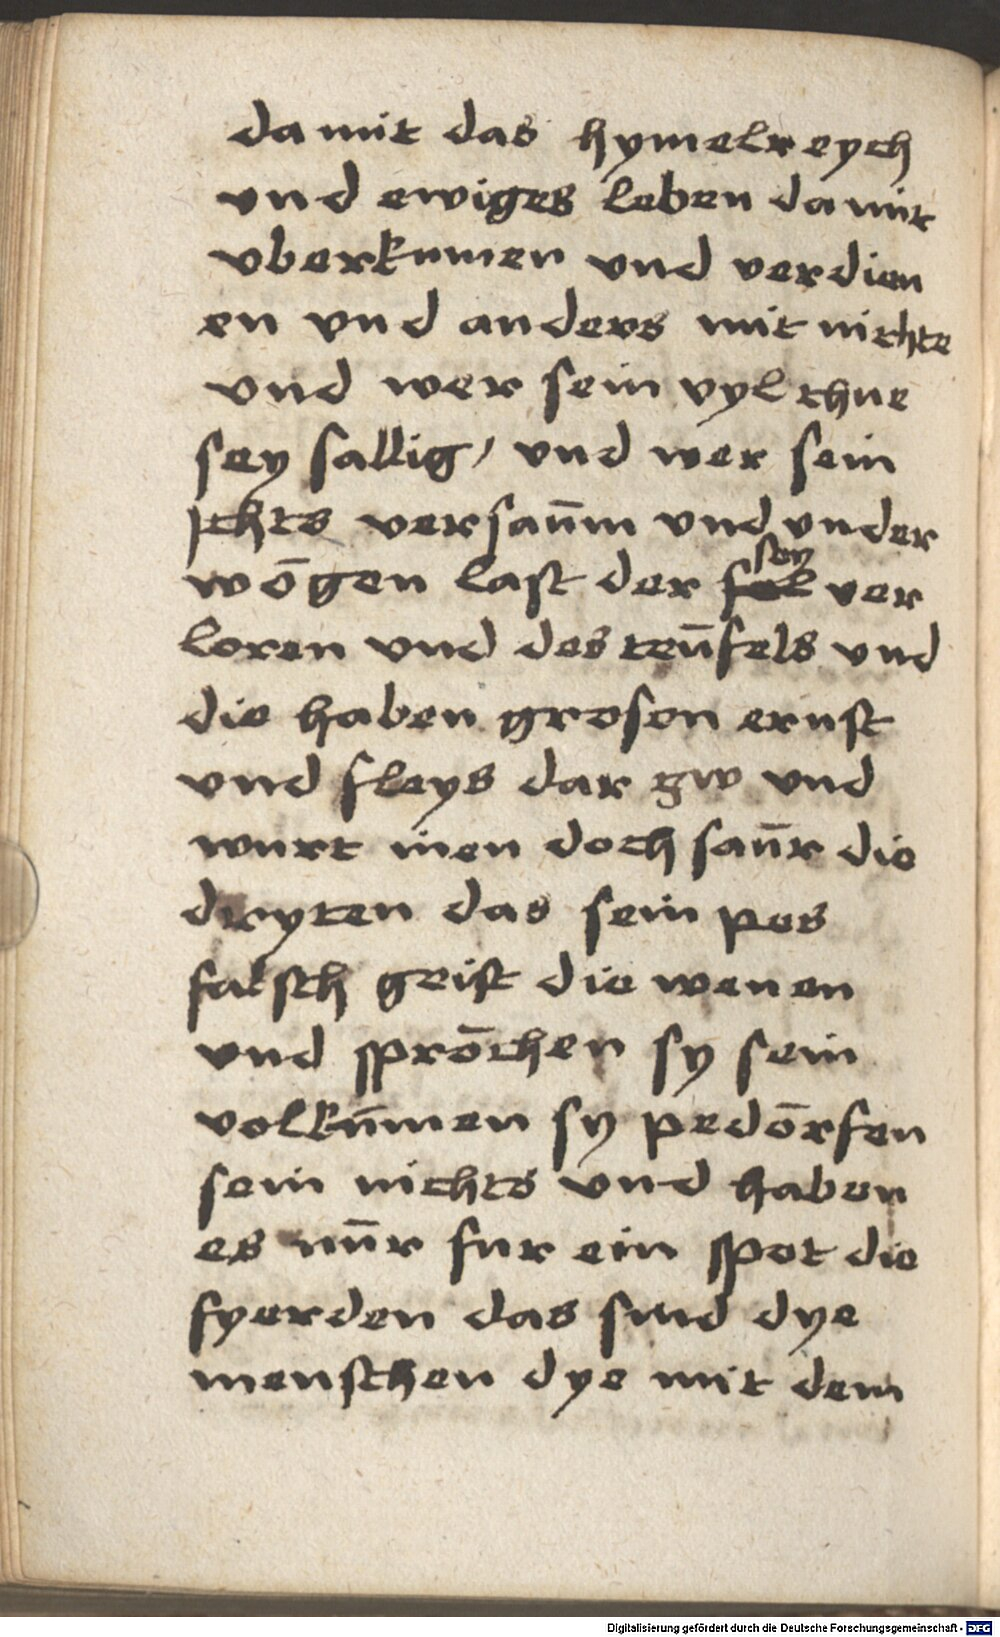 da mit das hymelreych
vnd ewiges leben da mit
vberkumen vnd verdien
en vnd anders mit nichte
vnd wer sein vyl thue
sey sallig / vnd wer sein
ichts versaūm vnd vnder
wōgen last der sey ver
loren vnd des teūfels vnd
die haben grosen ernst
vnd fleys dar zw vnd
wurt inen doch saūr die
dryten das sein pos
falsch geist die wenen
vnd sprōchen sy sein
volkūmen sy pedōrfen
sein nichts vnd haben
es nūr fur ein spot die
fyerden das sind dye
menschen dye mit dem
Digitalisierung gefördert durch die Deutsche Forschungsgemeinschaft - DFG